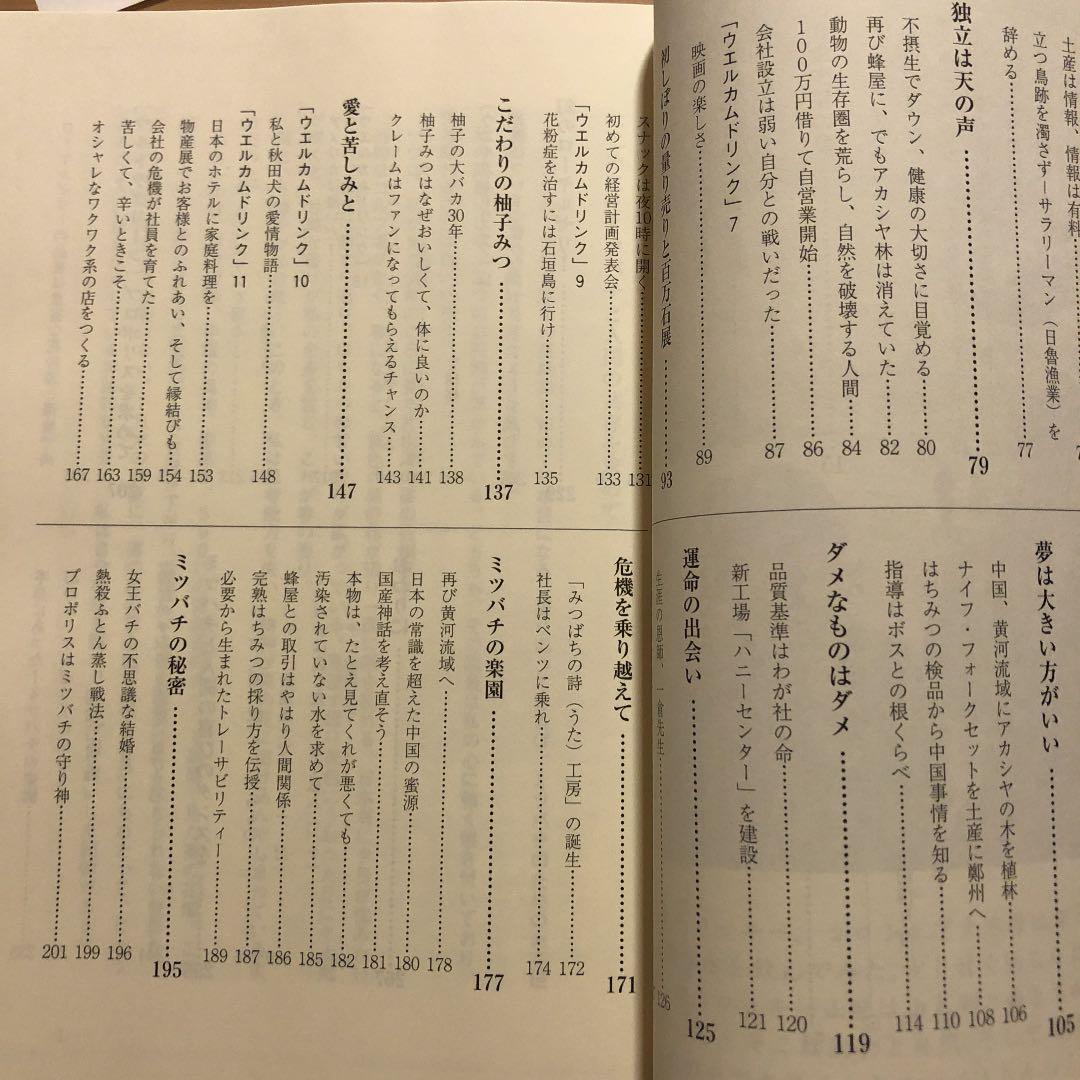 土産は情報、情報は有料
立つ鳥跡を濁さず―サラリーマン（日魯漁業）を
辞める…………77
独立は天の声…………79
不摂生でダウン、健康の大切さに目覚める…………80
再び蜂屋に、でもアカシヤ林は消えていた…………82
動物の生存圏を荒らし、自然を破壊する人間…………84
100万円借りて自営業開始…………86
会社設立は弱い自分との戦いだった…………87
「ウエルカムドリンク」7
映画の楽しさ…………89
初しぼりの量り売りと百万石展…………93
夢は大きい方がいい…………105
中国、黄河流域にアカシヤの木を植林…………106
ナイフ・フォークセットを土産に鄭州へ…………108
はちみつの検品から中国事情を知る…………110
指導はボスとの根くらべ…………114
ダメなものはダメ…………119
品質基準はわが社の命…………120
新工場「ハニーセンター」を建設…………121
運命の出会い…………125
生涯の恩師、一倉先生…………126
スナックは夜10時に開く…………131
初めての経営計画発表会…………133
「ウエルカムドリンク」9
花粉症を治すには石垣島に行け…………135
こだわりの柚子みつ…………137
柚子の大バカ30年…………138
柚子みつはなぜおいしくて、体に良いのか…………141
クレームはファンになってもらえるチャンス…………143
愛と苦しみと…………147
「ウエルカムドリンク」10
私と秋田犬の愛情物語…………148
「ウエルカムドリンク」11
日本のホテルに家庭料理を…………153
物産展でお客様とのふれあい、そして縁結びも…………154
会社の危機が社員を育てた…………159
苦しくて、辛いときこそ…………163
オシャレなワクワク系の店をつくる…………167
危機を乗り越えて…………171
「みつばちの詩（うた）工房」の誕生…………172
社長はベンツに乗れ…………174
ミツバチの楽園…………177
再び黄河流域へ…………178
日本の常識を超えた中国の蜜源…………180
国産神話を考え直そう…………181
本物は、たとえ見てくれが悪くても…………182
汚染されていない水を求めて…………185
蜂屋との取引はやはり人間関係…………186
完熟はちみつの採り方を伝授…………187
必要から生まれたトレーサビリティー…………189
ミツバチの秘密…………195
女王バチの不思議な結婚…………196
熱殺ふとん蒸し戦法…………199
プロポリスはミツバチの守り神…………201